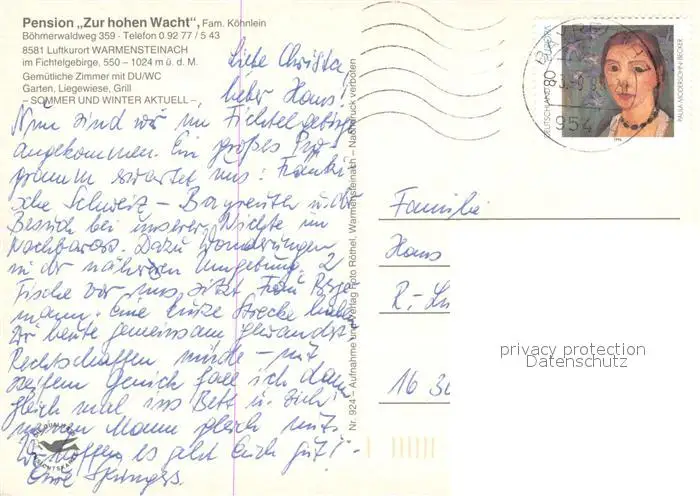 Pension „Zur hohen Wacht", Fam. Köhnlein
Böhmerwaldweg 359 · Telefon 0 92 77 / 5 43
8581 Luftkurort WARMENSTEINACH
im Fichtelgebirge, 550 – 1024 m ü. d. M.
Gemütliche Zimmer mit DU/WC
Garten, Liegewiese, Grill
– SOMMER UND WINTER AKTUELL –
Liebe Christa,
lieber Hans!
Nun sind wir im Fichtelgebirge
angekommen. Ein großes Pro-
gramm erwartet uns: Fränki-
sche Schweiz – Bayreuth u. der
Besuch bei unserer Nichte im
Nachbarort. Dazu Wanderungen
in der näheren Umgebung. 2
Tische vor uns sitzt Frau Berg-
mann. Eine kurze Strecke haben
wir heute gemeinsam gewandert.
Rechtschaffen müde – mit
steifem Genick fall ich dann
gleich mal ins Bett u. zieh
meinen Mann gleich mit.
Wir hoffen, es geht Euch gut! –
Eure Springers.
Nr. 924 – Aufnahme und Verlag Foto Röthel, Warmensteinach – Nachdruck verboten
DEUTSCHLAND 80
PAULA MODERSOHN-BECKER
954
Familie
Hans
R.-Lu
16 30
privacy protection
Datenschutz